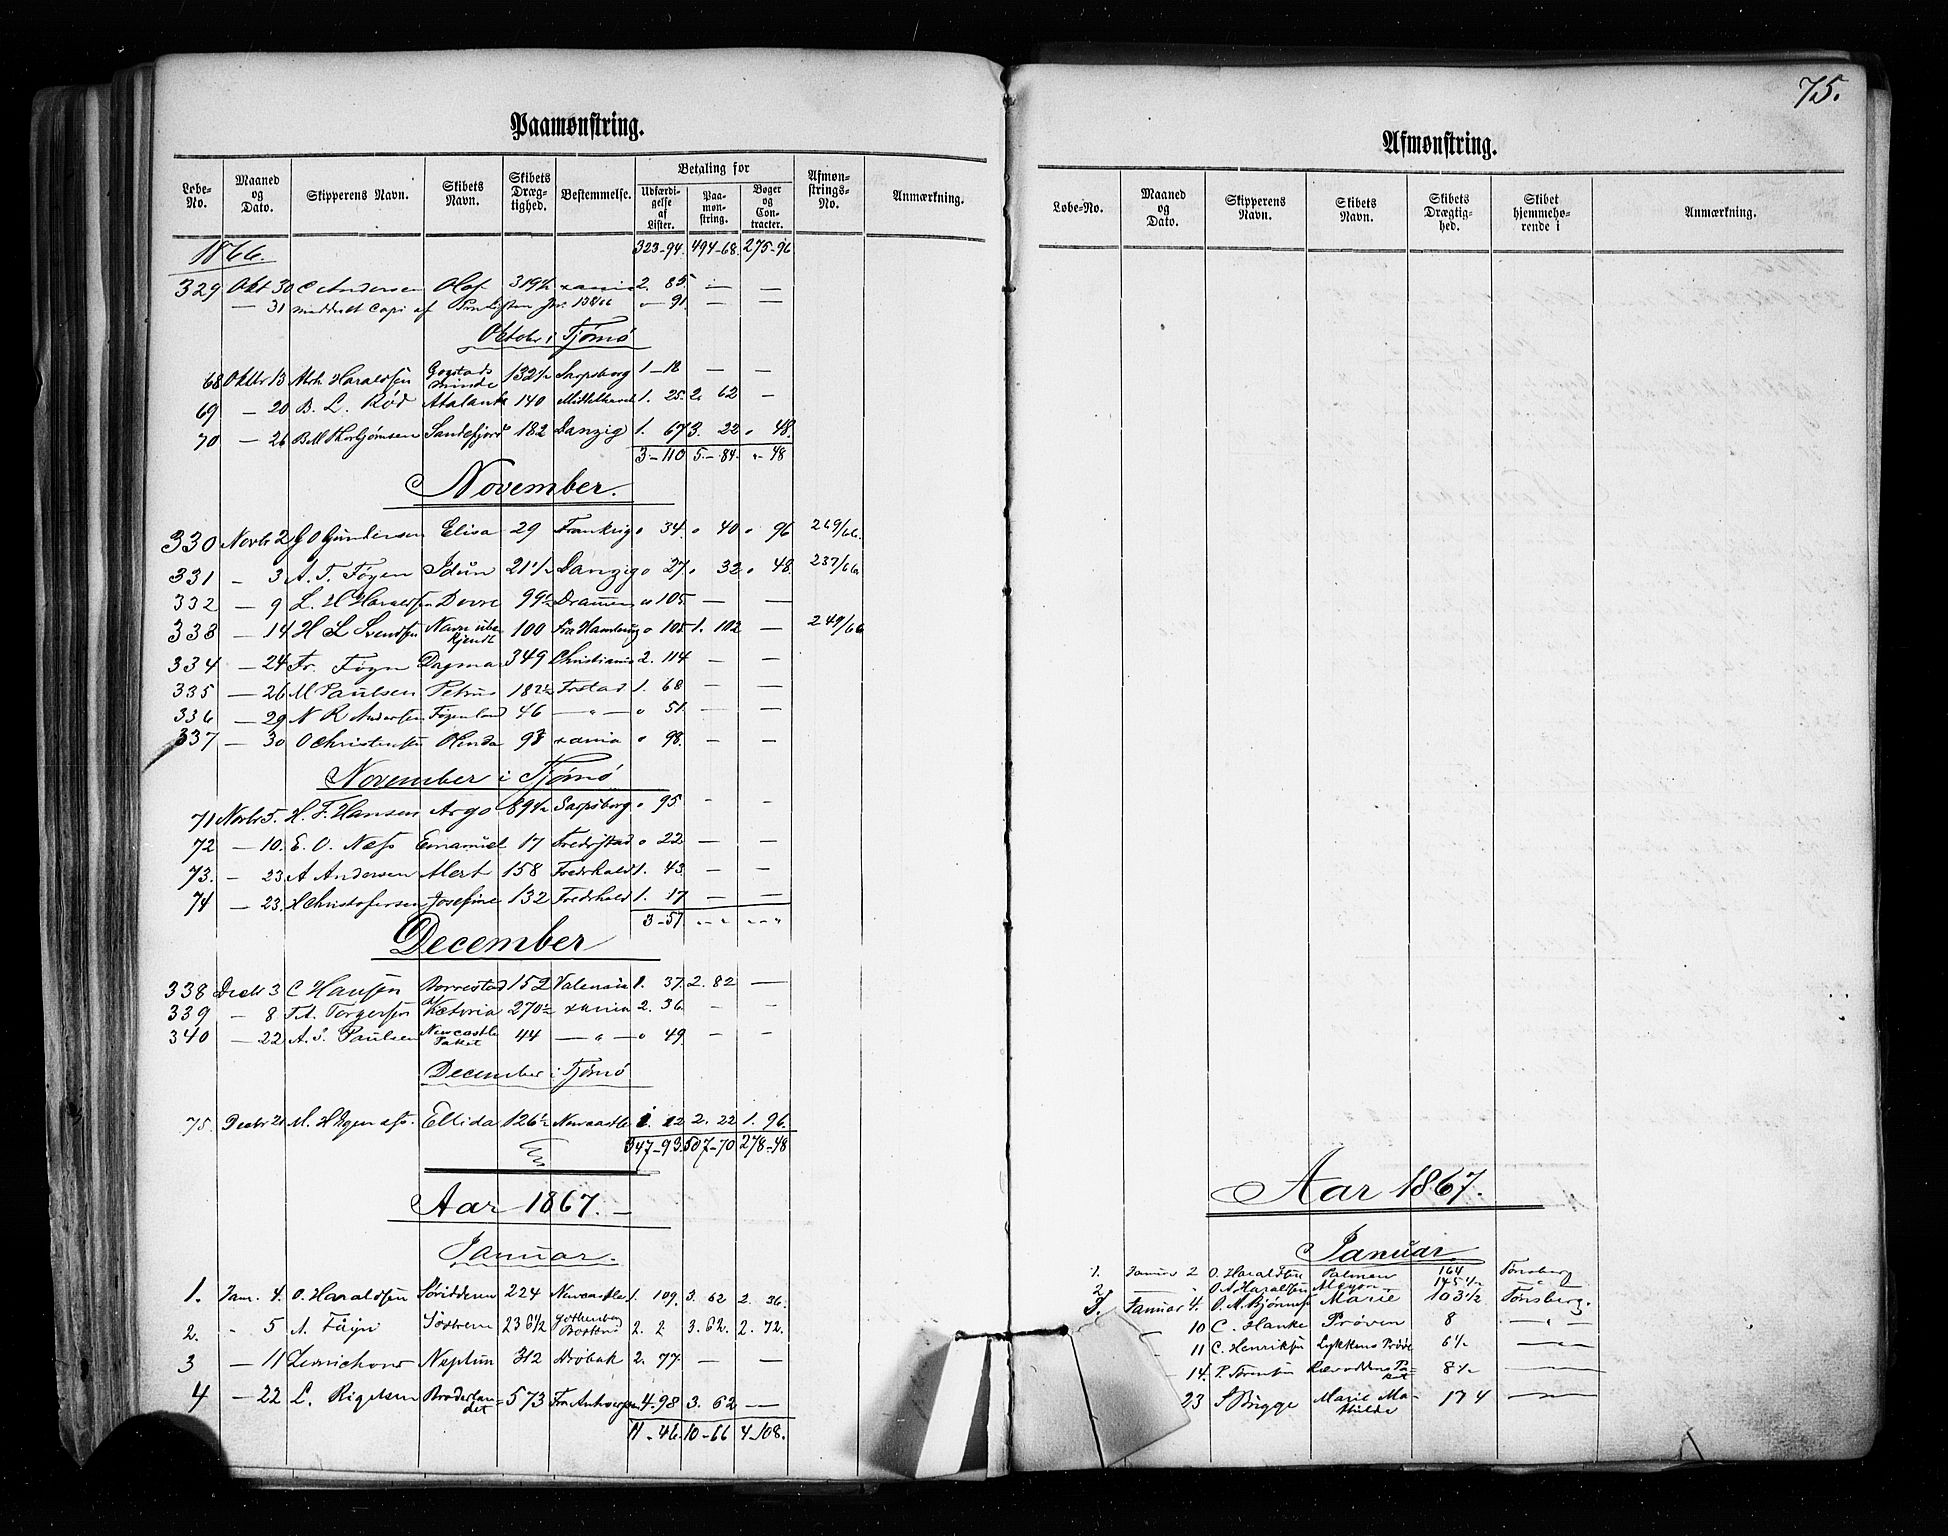 Paamønstring.
Løbe-No. Maaned og Dato. Skipperens Navn. Skibets Navn. Skibets Dræg-tighed. Bestemmelse. Betaling for Udfærdi-gelse af Lister. Paa-mon-string. Bøger og Con-tracter. Afmøn-strings-No. Anmærkning.
1866. 323-94. 494-68. 275-96
329 Okt 30 C Andersen Olaf 319½ xania 2. 85. — —
— 31 meddelt Copi af 138/66 " 91. — —
Oktobr i Tjømø
68 Oktbr 13 Mth. Haraldsen Gogstads minde 132½ Sarpsborg 1-18 — —
69 — 20 B. L. Rød Atalanta 140 Middelhavet 1. 25. 2. 62 —
70 — 26 Thorbjørnsen Sandefjord 182 Danzig 1. 67 3. 22 " 48.
3-110 5.-84. "-48
November.
330 Novbr 2 G O Gundersen Elisa 29 Frankrig " 34. " 40 " 96 269/66.
331 — 3 A. T. Føyen Idun 21½ Danzig " 27. " 32 " 48. 237/66
332 — 9 L. H Haraldsen Dovre 99½ Drammen " 105. — —
333 — 14 H L Svendsen Navn ube kjendt 100 Fra Hamburg " 105. 1. 102 — 249/66
334 — 24 Fr. Føyn Dagmar 349 Christiania 2. 114 — —
335 — 26 M Paulsen Petrus 182½ Frstad 1. 68 — —
336 — 29 N R Andersen Føyenland 46 — " — " 51. — —
337 — 30 O Christensen Olinda 98 xania " 98. — —
November i Tjømø
71 Novbr 5. H. F. Hansen Argo 89½ Sarpsborg " 95 — —
72 — 10. E. O. Næss Emanuel 17 Fredrikstad " 22 — —
73. — 23 A Andersen Mert 158 Fredrhald 1. 43. — —
74 — 23. H Christofersen Josefine 132 Fredrhald 1. 17 — —
3-57 "-" "-"
December
338 Decbr 3 C Hansen Borrestad 152 Valencia 1. 37. 2. 82 —
339 — 8 T. A. Torgersen Victoria 270½ xania 2. 36. — —
340 — 22 A. S. Paulsen Newcastle Paket 44 — " — " 49. — —
December i Tjømø
75. Decbr 21 M. Ellida 126½ Newcastle 1. 22 2. 22 1. 96.
347-93. 507-70 278-48
Aar 1867.—
Januar.
1. Jan. 4. O. Haraldsen 224 Newcastle 1. 109. 3. 62 2. 36.
2. " 5 A. Føyn Søstrene 236½ Gothenborg 2. 2 3. 62. 2. 72.
3 — 11 Neptun 312 Drøbak 2. 77. — —
4 — 22 L. Rigelsen Broderlan=det 573 Fra Antwerpen 4-98 3. 62 —
11-46. 10-66 4-108.
75.
Afmønstring.
Løbe-No. Maaned og Dato. Skipperens Navn. Skibets Navn. Skibets Drægtig-hed. Skibet hjemmeho-rende i Anmærkning.
Aar 1867.
Januar.
1. Januar 2 O. Haraldsen Palmen 164 Tønsberg
2. " O. A Haraldsen 145½ "
3. Januar 4. O. A. Bjønness Marie 103½ Tønsberg.
— 10 C. Hanke Prøven 8 — " —
— 11 C. Henriksen Lykkens Prøve 6½ —
— 14. P. Sørensen Paket 8½ —
23 S Brigge Marie Mathilde 174 —